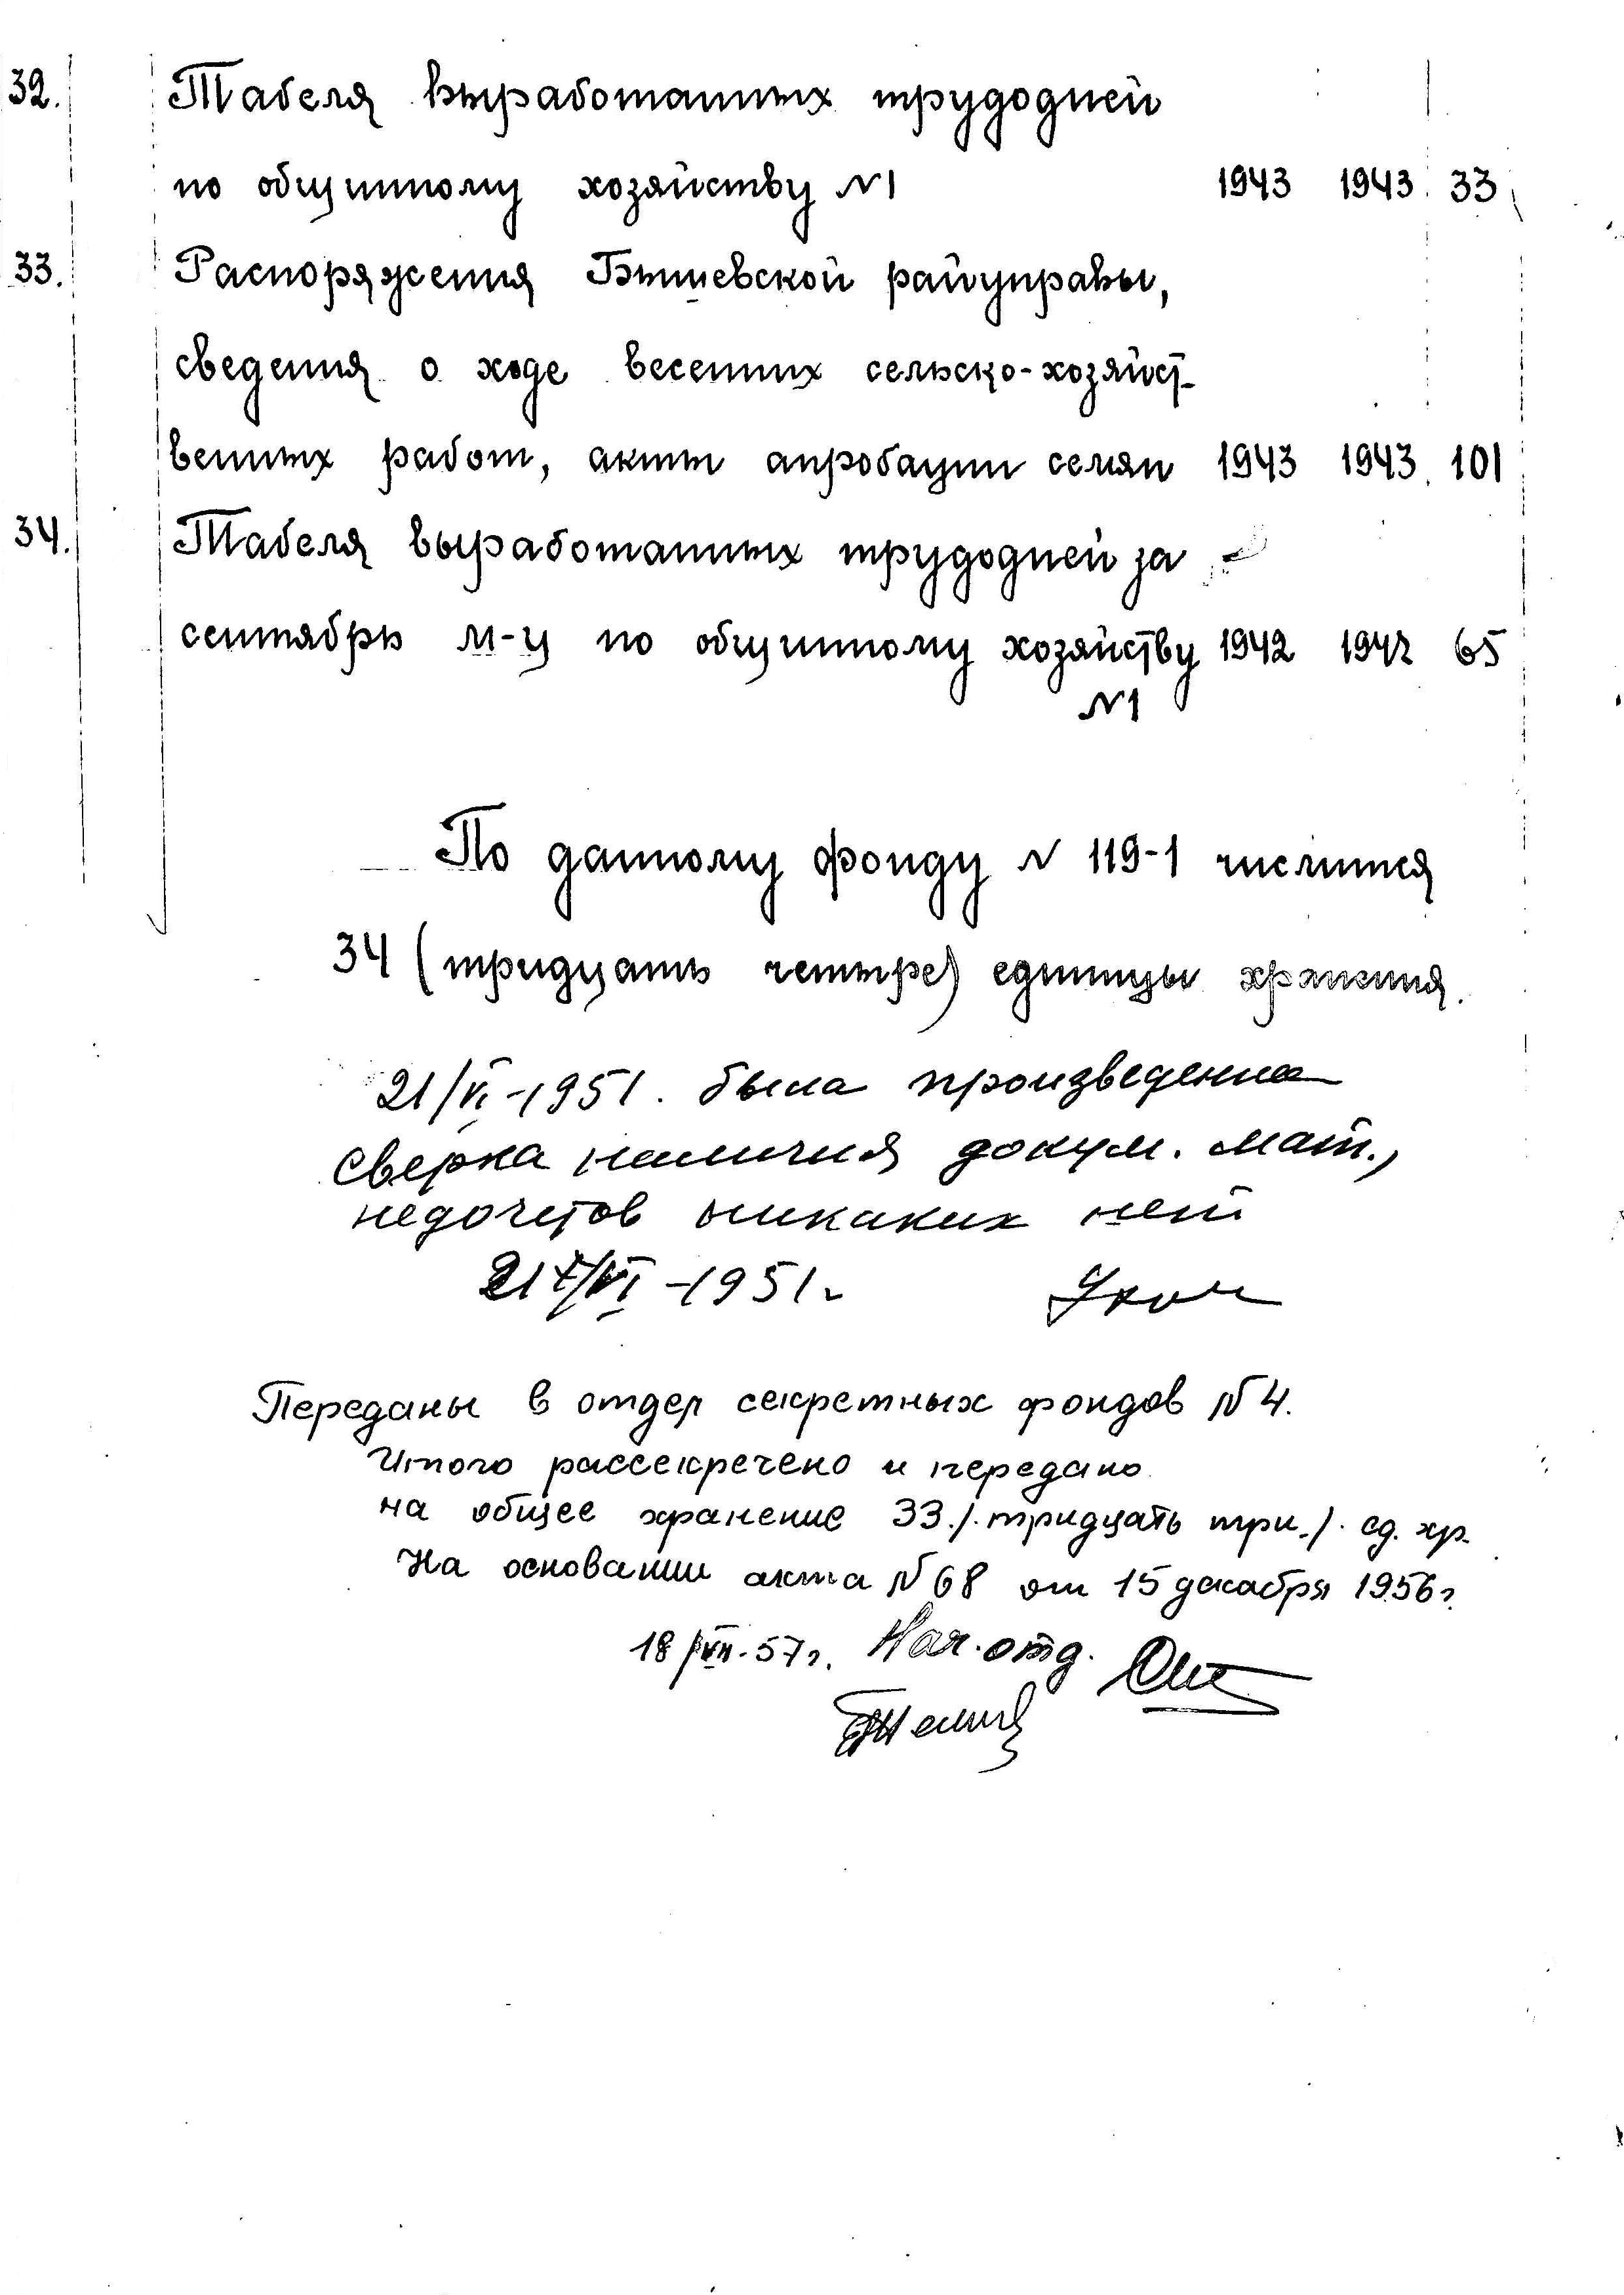 32. Табеля выработанных трудодней
по общинному хозяйству №1 1943 1943 33
33. Распоряжения Бышевской райуправы,
сведения о ходе весенних сельско-хозяйст-
венных работ, акты апробации семян 1943 1943 101
34. Табеля выработанных трудодней за
сентябрь м-ц по общинному хозяйству 1942 1942 65
№1
По данному фонду № 119-1 числится
34 (тридцать четыре) единицы хранения.
21/VI-1951. была произведенна
сверка наличия докум. мат.,
недочетов никаких нет
21/VI-1951.
Переданы в отдел секретных фондов №4.
Итого рассекречено и передано
на общее хранение 33./.тридцать три./. ед. хр.
На основании акта №68 от 15 декабря 1956г.
18/VII.57г. Нач. отд.